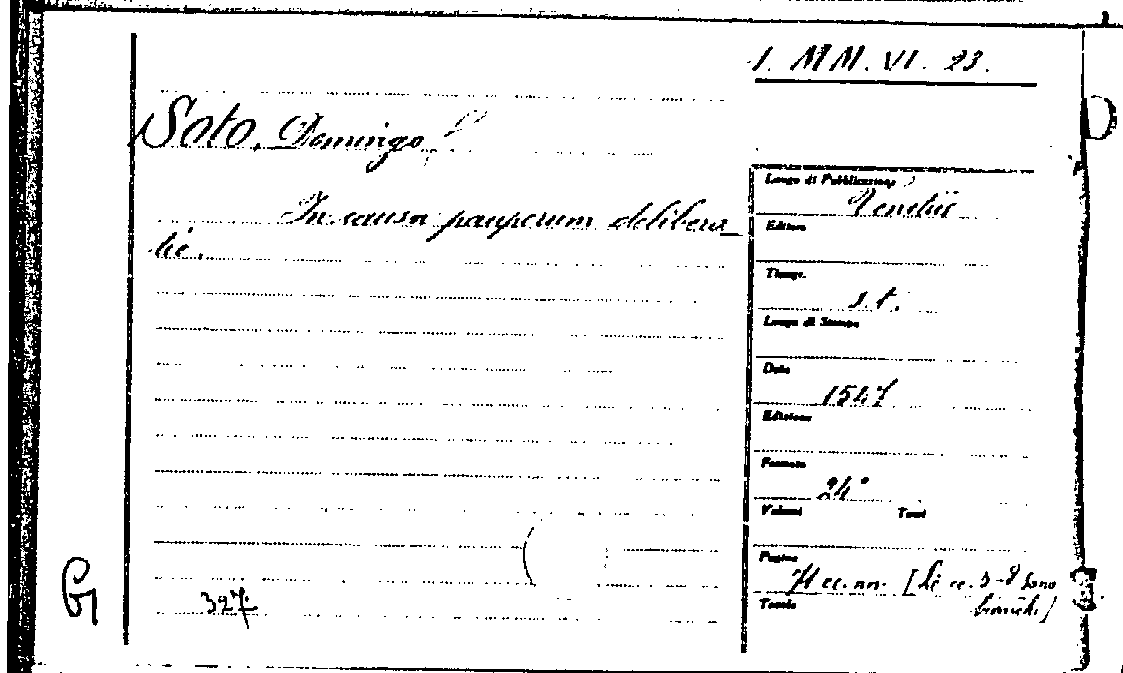 1. MM. VI. 23.
Soto, Domingo
In causa pauperum delibera_
tio.
Luogo di Pubblicazione
Venetiis
Editore
Tipogr.
s. t.
Luogo di Stampa
Data
1547
Edizione
Formato
24°
Volumi Tomi
Pagine
cc. nn. [le cc. 5-8 sono
bianche]
Tavole
G
327